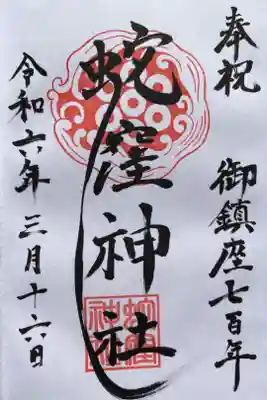 奉祝
御鎮座七百年
蛇窪神社
令和六年三月十六日
蛇窪神社